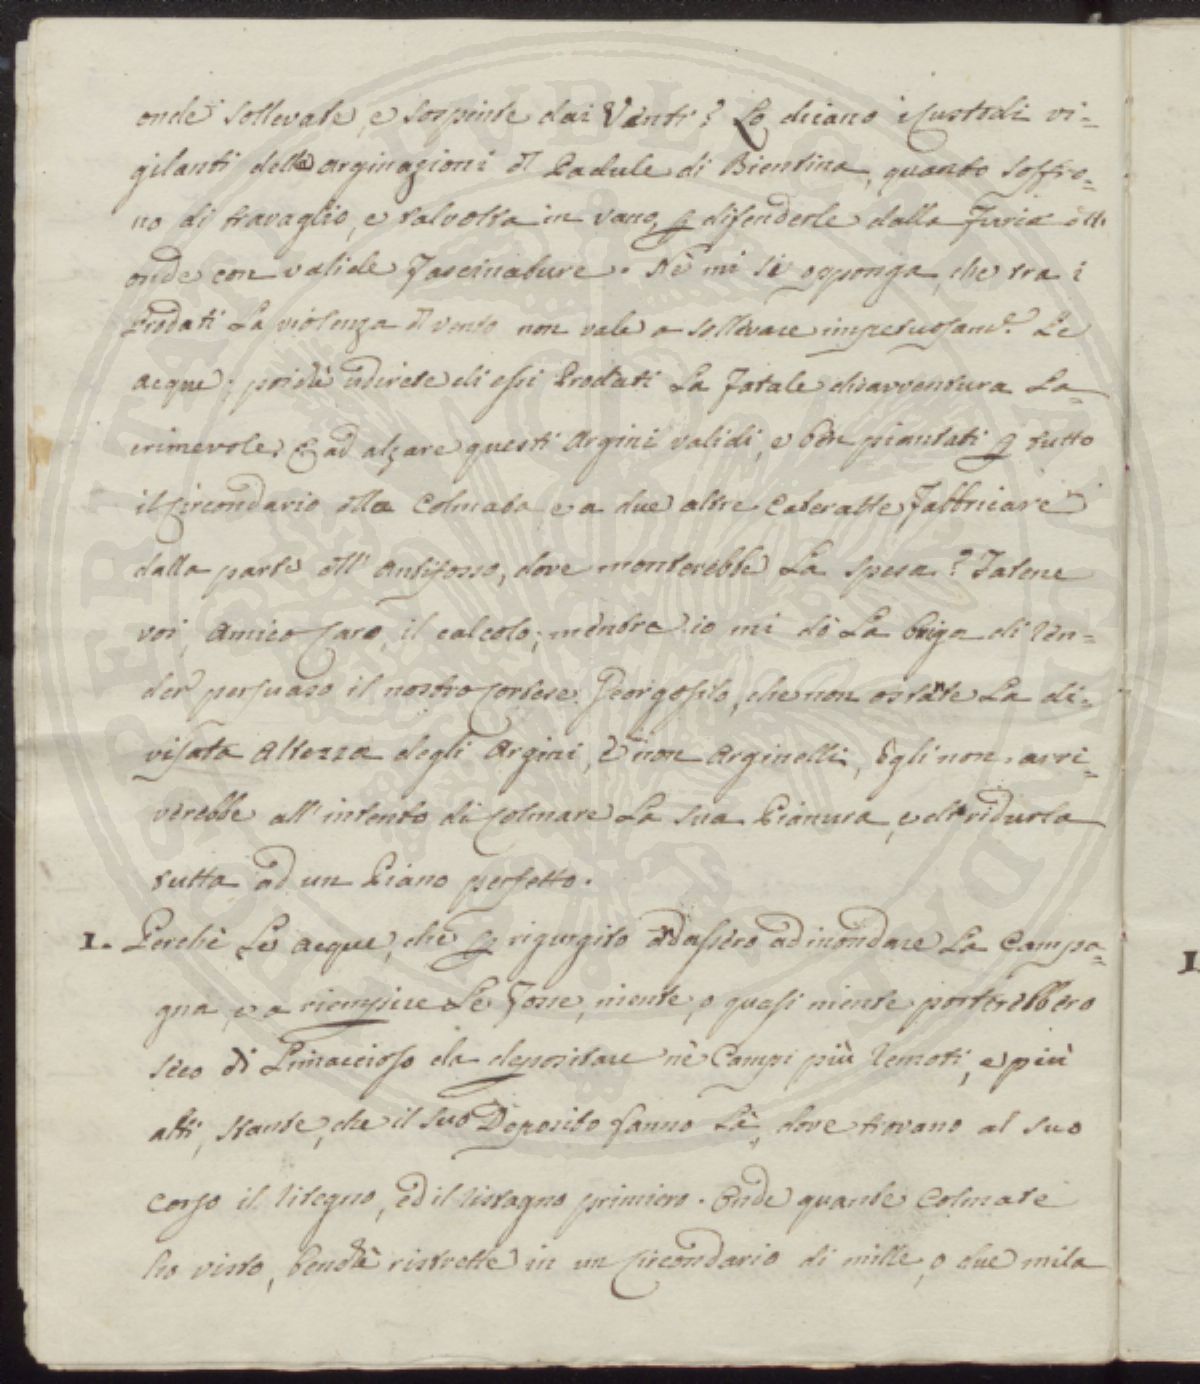 onde sollevate, e sospinte dai Venti? Lo dicano i Custodi vi-
gilanti delle arginazioni dl Padule di Bientina, quanto soffro-
no di travaglio, e talvolta in vano, p difenderle dalla Furia dll.
onde con valide Fascinature. Nè mi si opponga, che tra i
Prodati La violenza dl vento non vale a sollevare impetuosam.e Le
acque; poichè udirete di essi Prodati La Fatale disavventura La-
crimevole. E ad alzare questi Argini validi, e ben piantati p tutto
il Circondario dlla Colmata e a due altre Cateratte Fabbricare
dalla parte dll' Antifosso, dove monterebbe La spesa? Fatene
voi, Amico Caro, il calcolo; mentre io mi dò La briga di ren-
der persuaso il nostro Cortese Georgofilo, che non ostante La di-
visata Altezza degli Argini, e non Arginelli, Egli non arri-
verebbe all' intento di Colmare La sua Pianura, e di ridurla
tutta ad un Piano perfetto.
1. Perchè Le acque, che p rigurgito andassero ad inondare La Campa-
gna, e a riempire Le Fosse, niente, o quasi niente porterebbero
seco di Limaccioso da depositare nè Campi più remoti, e più
alti, stante, che il suo Deposito fanno Là, dove trovano al suo
corso il ritegno, ed il ristagno primiero. Onde quante Colmate
ho visto, benchè ristrette in un Circondario di mille, o due mila
1.